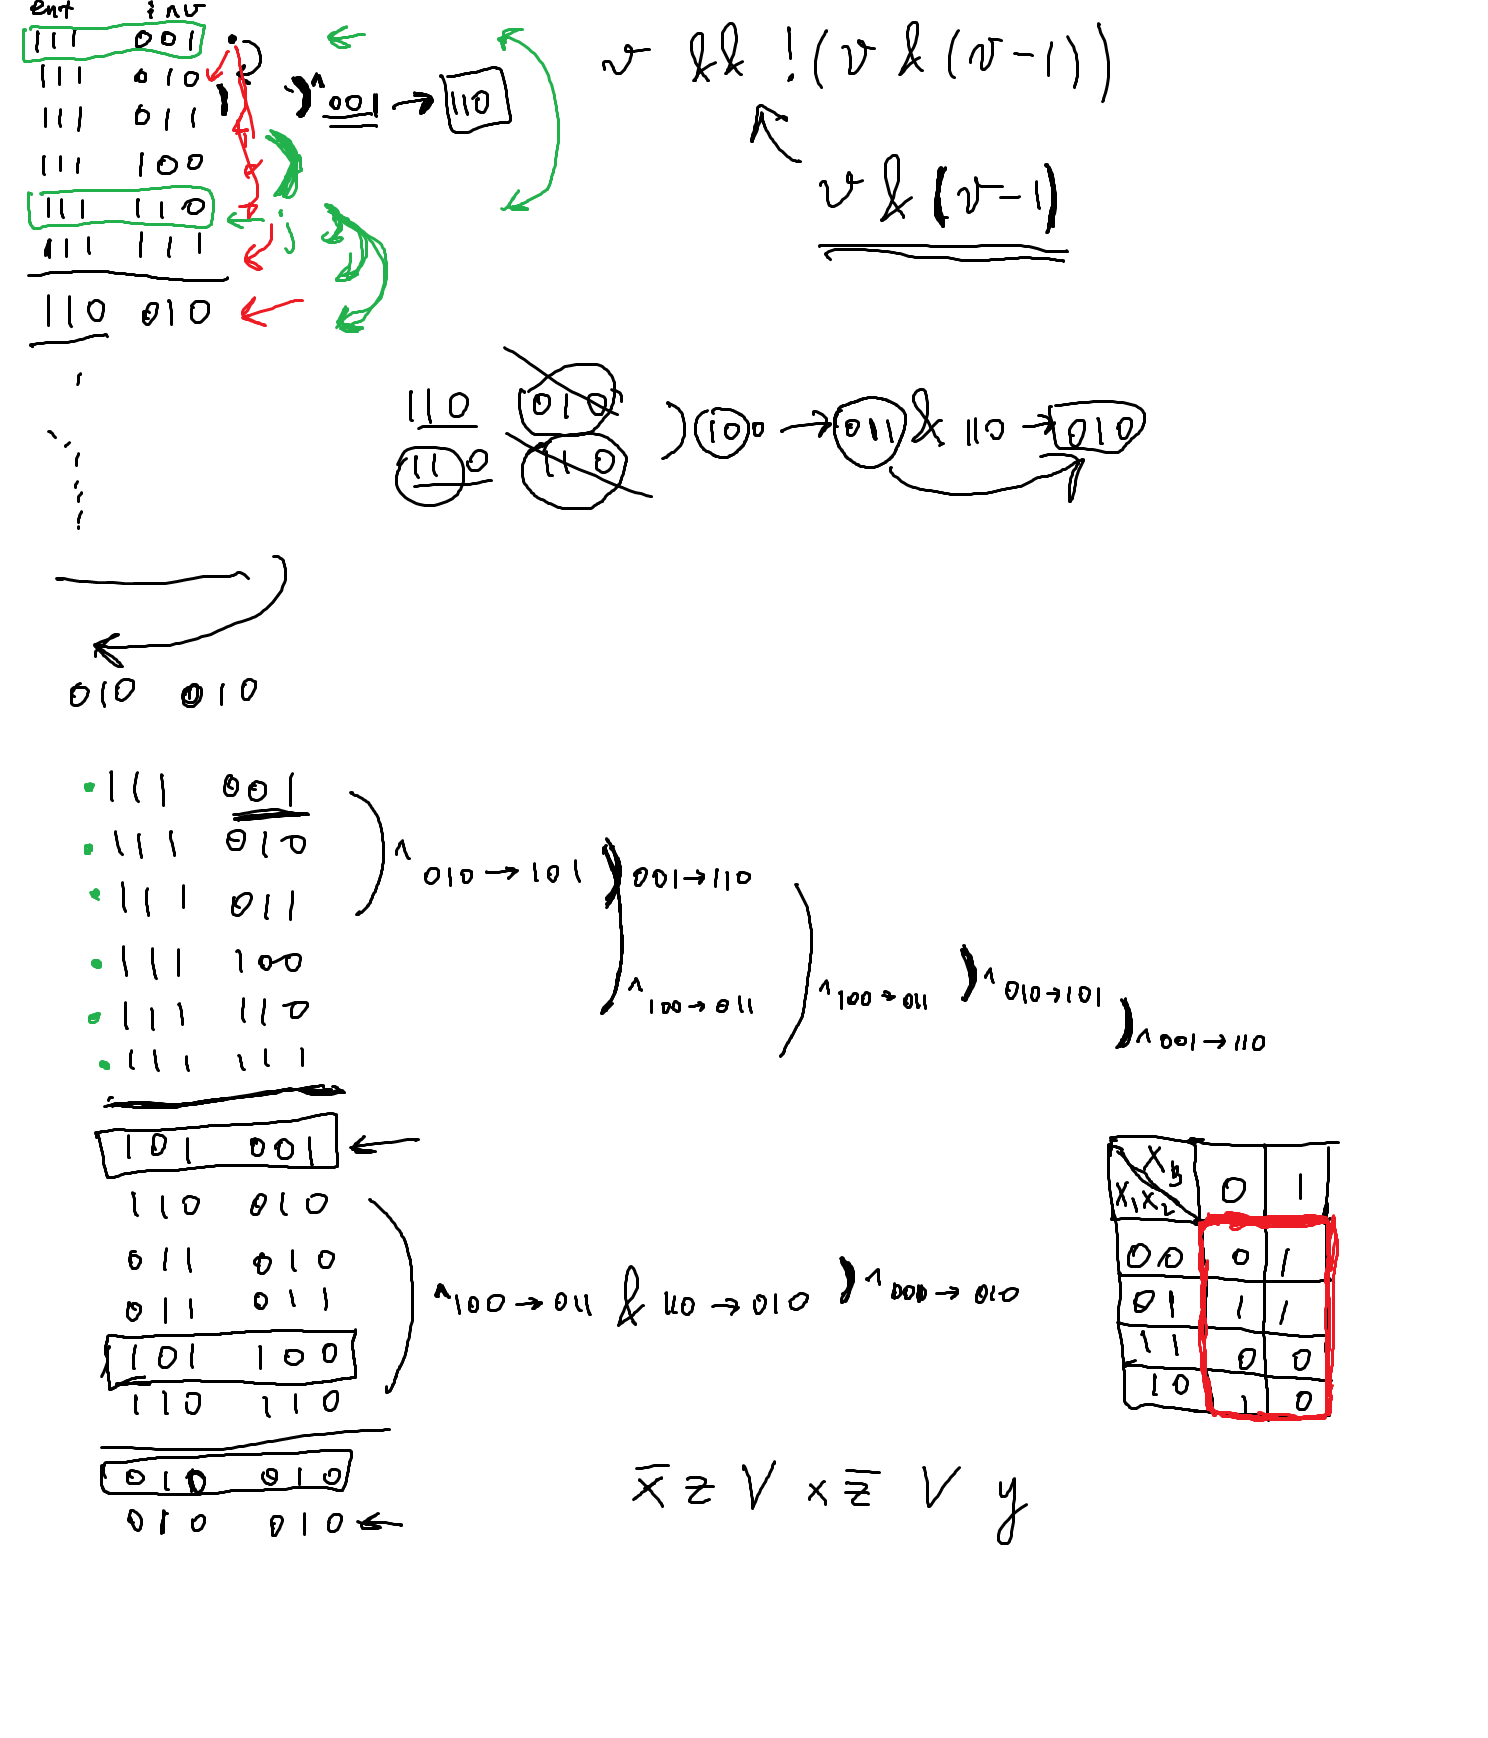 ent inv
111 001
111 010
111 011
111 100
111 110
111 111
110 010
^ 001 → 110
v && !(v & (v-1))
v & (v-1)
j
110 010
110 110
) 100 → 011 & 110 → 010
010 010
111 001
111 010
111 011
111 100
111 110
111 111
^ 010 → 101
) 001 → 110
^ 100 → 011
^ 100 → 011
) ^ 010 → 101
) ^ 001 → 110
101 001
110 010
011 010
011 011
101 100
110 110
^ 100 → 011 & 110 → 010
) ^ 000 → 010
010 010
010 010
X₃ 0 1
X₁X₂
00 0 1
01 1 1
11 0 0
10 1 0
x̅ z V x z̅ V y